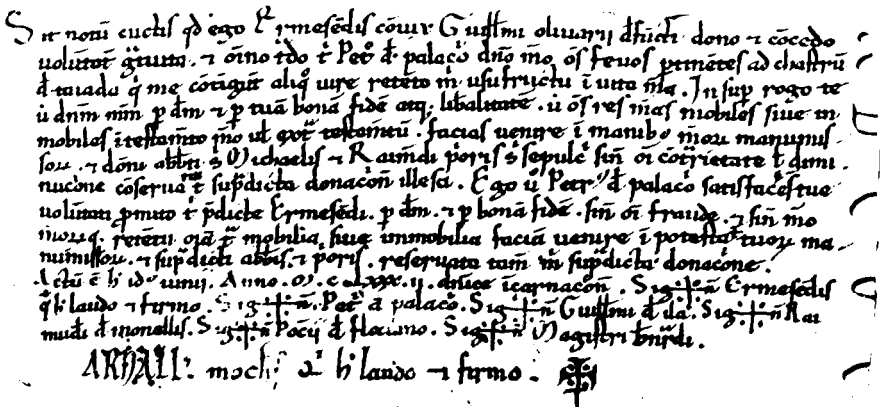 Sit notū cūctis qđ ego Ermesēdis cōiux Guillmi oliuarii đfūcti dono ⁊ cōcedo
uolūtate gͣtuita ⁊ ōīno tͥdo tͥ Petͦ đ palacͦo dn̄o mō ōs feuos ꝑtinētes ad chastrū
đ taiadu q̄ me cōtigūt aliqͦ iure retēto m̄ usufructu ī uita mͣa. Insup rogo te
ū dn̄m mm̄ ꝑ dm̄ ⁊ ꝑ tuā bonā fidē atq; libalitatē. ū ōs res mͣas mobiles siue in
mobiles ī testamͭto mͦo ul̄ testamtū. facias uenire ī manibꝰ mͦoꝝ manumis
soꝝ. ⁊ dōni abb̄ti s̄ Michaelis ⁊ Raimūdi pͥoris s̄ sepulcͥ sin̄ ōi cōtrietate ⁊ dimi
nucōne cōseruata tͥ sup̄dicta donacōn illesa. Ego ū Petrꝰ đ palacͦo satisfacēs tue
uolūtati ꝓmito tͥ p̄dicte Ermesēdi. ꝑ dm̄. ⁊ ꝑ bonā fidē. sin̄ ōi fraude. ⁊ sin̄ mͦo
mͦoꝝq; retētu oīa tͣ mobilia siue inmobilia faciā uenire ī potestate tuoꝝ ma
numissoꝝ. ⁊ sup̄dicti abb̄is ⁊ pͥoris. reseruata tam̄ m̄ sup̄dicta donacōne.
Actū ē h̄ idꝰ iunii. Anno. M. c. lxxx. ii. dn̄ice īcarnacōn. Sig+n̄ Ermesēdis
q̄ h̄ laudo ⁊ firmo. Sig+n̄ Petͥ đ palacͦo. Sig+n̄ Guillmi đ Sig+n̄ Rai
mūdi đ monellis. Sig+n̄ Pōcii đ Sig+n̄ Magistri bn̄rdi.
ARNALL' moch' qͥ h̄ laudo ⁊ firmo.